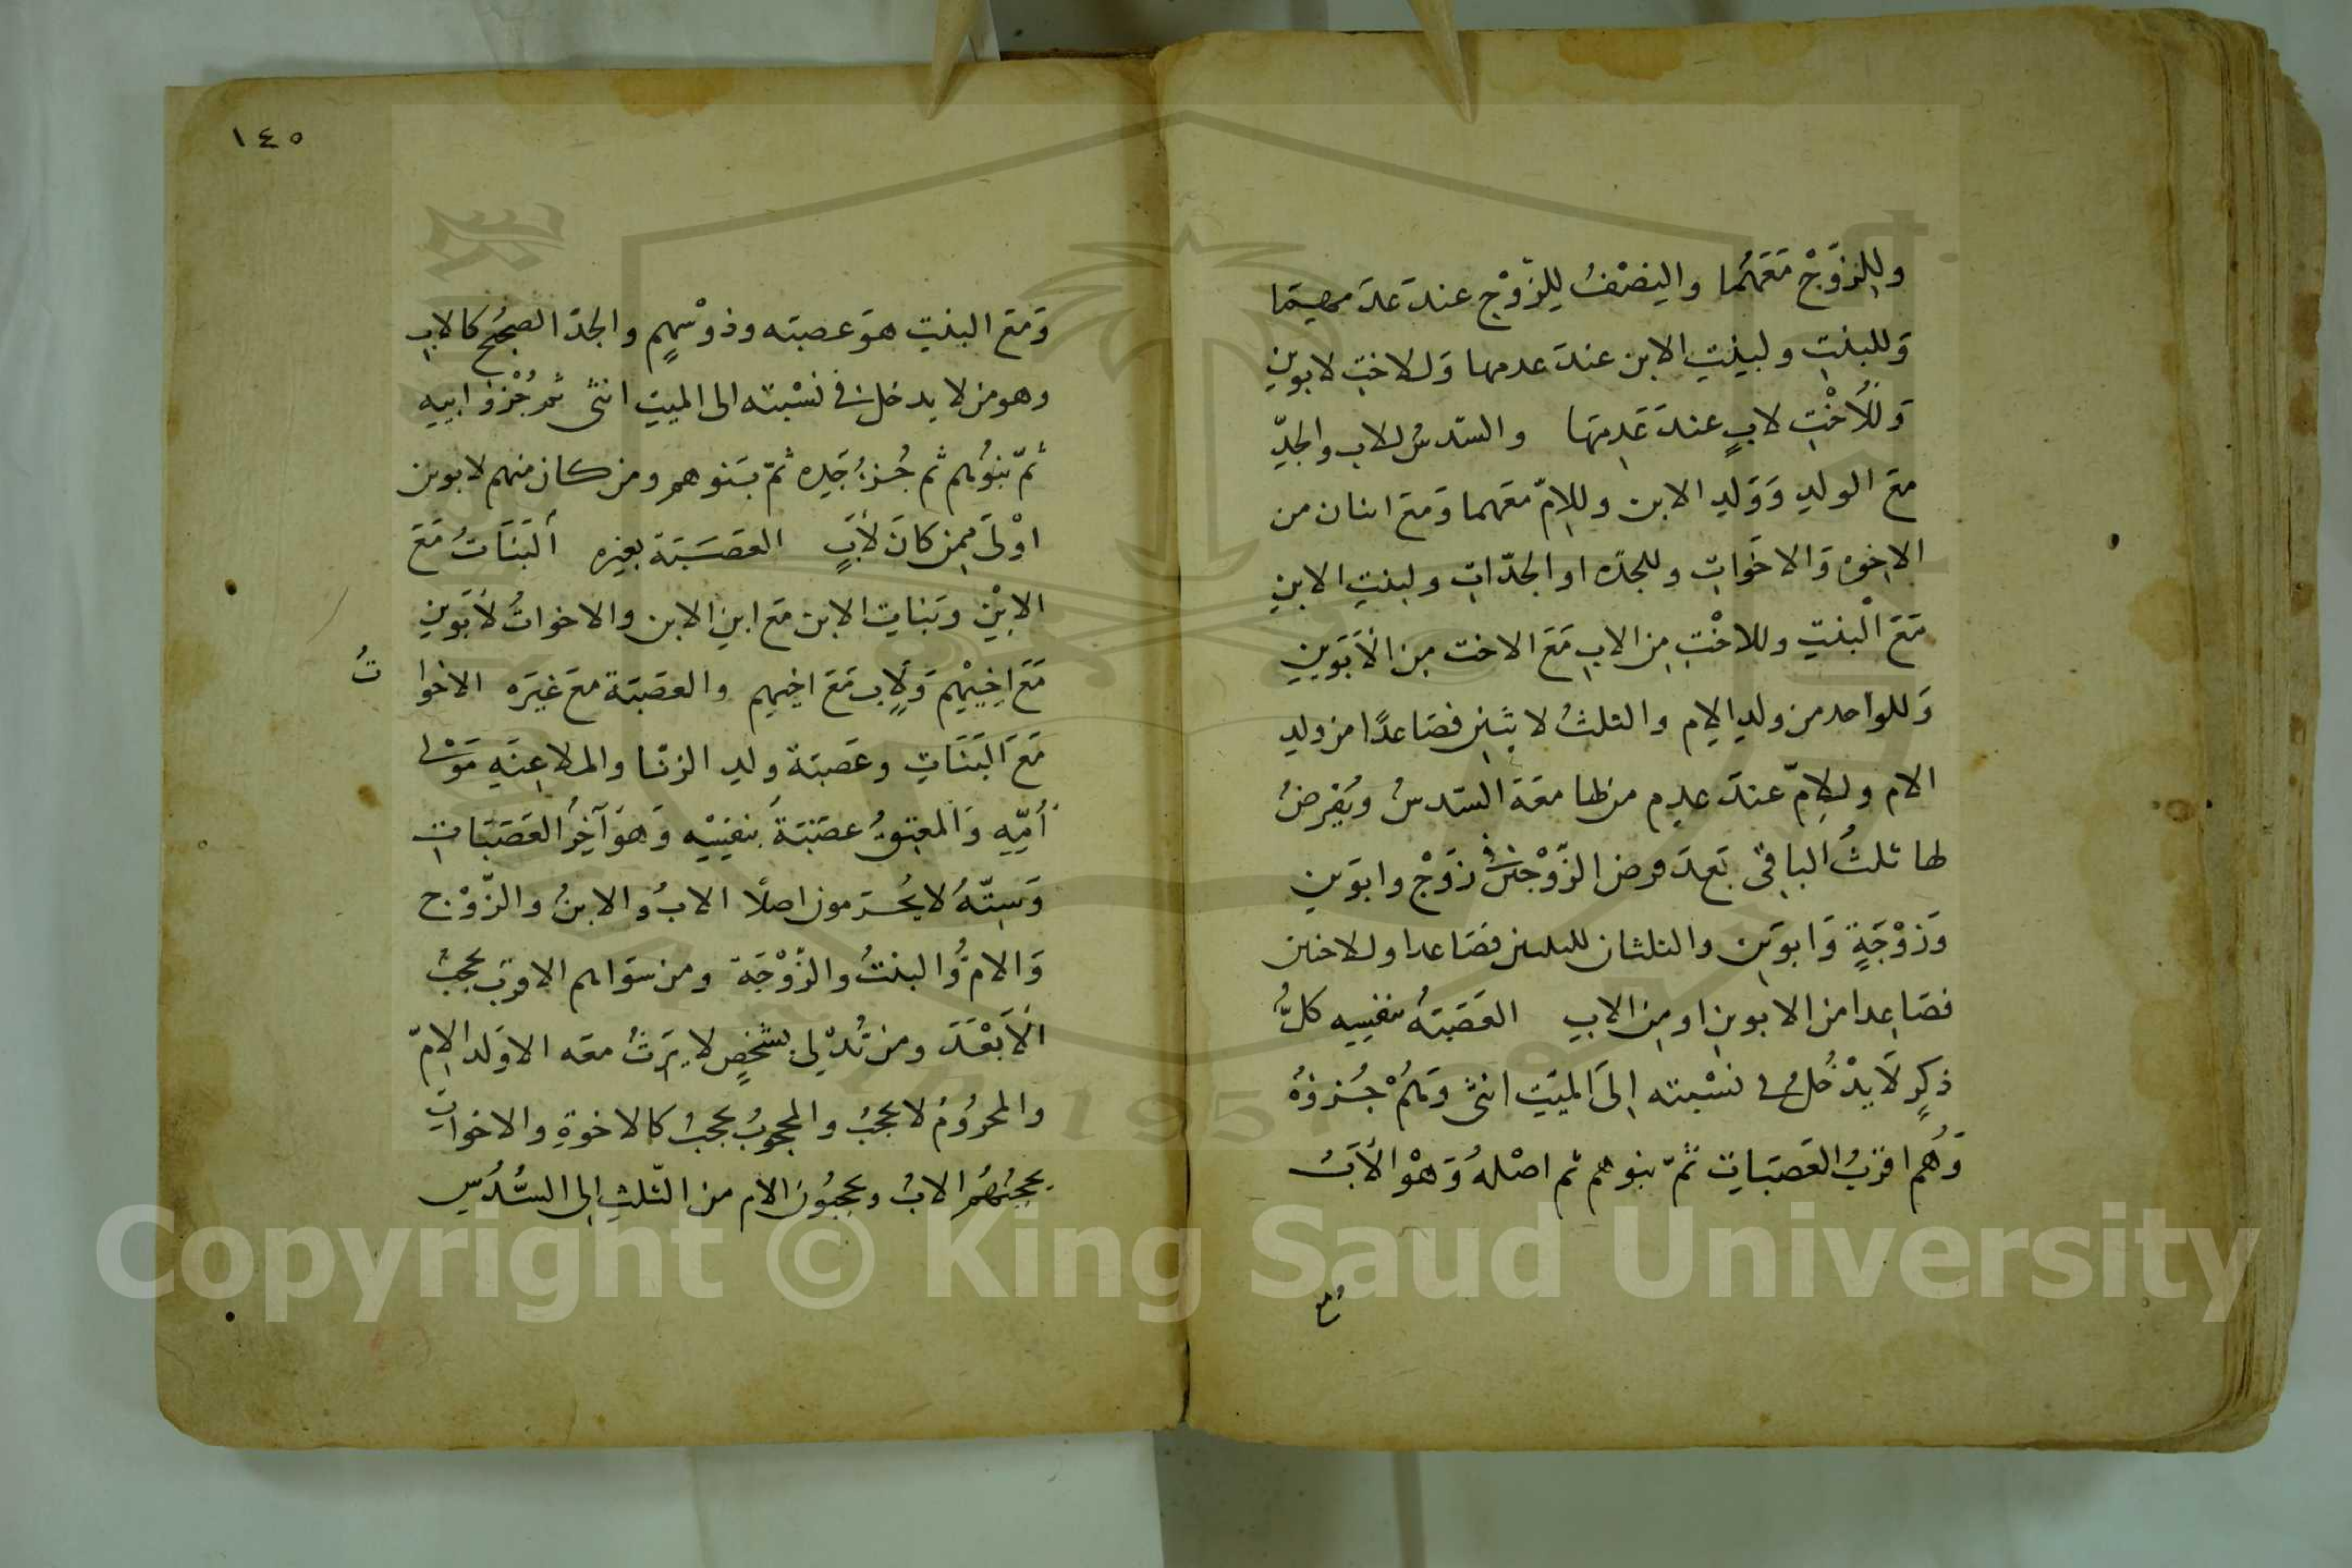 وللزوج معهما والنصف للزوج عند عدمهما
وللبنت ولبنت الابن عند عدمها وللاخت لابوين
وللأخت لاب عند عدمها والسدس للاب والجد
مع الولد وولد الابن وللام معهما ومع اثنان من
الاخوة والاخوات وللجدة او الجدات ولبنت الابن
مع البنت وللاخت من الاب مع الاخت من الأبوين
وللواحد من ولد الام والثلث لاثنين فصاعدًا من ولد
الام وللام عند عدم من لها معه السدس ويفرض
لها ثلث الباقي بعد فرض الزوجين في زوج وابوين
وزوجة وابوين والثلثان للبنتين فصاعدا وللاختين
فصاعدا من الابوين او من الاب العصبة بنفسه كل
ذكر لا يدخل في نسبته الى الميت انثى وهم جزؤه
وهم اقرب العصبات ثم بنوهم ثم اصله وهو الأب
ومع
١٤٥
ومع البنت هو عصبته وذو سهم والجد الصحيح كالاب
وهو من لا يدخل في نسبته الى الميت انثى ثم جزؤ ابيه
ثم بنوهم ثم جزؤ جده ثم بنوهم ومن كان منهم لابوين
اولى ممن كان لأب العصبة بغيره ألبنات مع
الابن وبنات الابن مع ابن الابن والاخوات لأبوين
مع اخيهم ولاب مع اخيهم والعصبة مع غيره الاخوات
مع البنات وعصبة ولد الزنا والملاعنه مولى
أمه والمعتق عصبة بنفسه وهو آخر العصبات
وستة لا يحرمون اصلًا الاب والابن والزوج
والام والبنت والزوجة ومن سواهم الاقرب يحجب
الأبعد ومن تدلى بشخص لا يرث معه الا ولد الام
والمحروم لا يحجب والمحجوب يحجب كالاخوة والاخوات
يحجبهم الاب ويحجبون الام من الثلث الى السدس
Copyright © King Saud University
1957